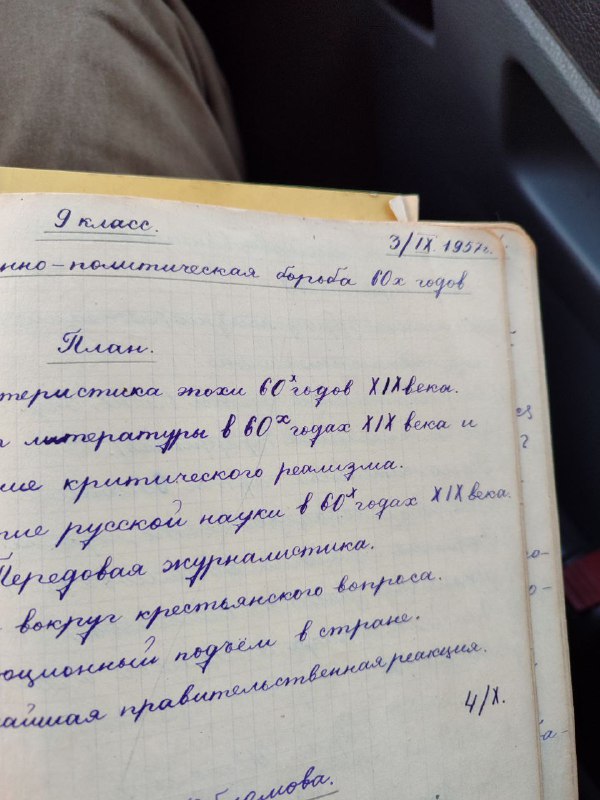 9 класс.
3/IX 1957г.
нно-политическая борьба 60х годов
План.
теристика эпохи 60х годов XIX века.
литературы в 60х годах XIX века и
ие критического реализма.
тие русской науки в 60х годах XIX века.
Передовая журналистика.
вокруг крестьянского вопроса.
юционный подъём в стране.
айшая правительственная реакция.
4/X.
бломова.